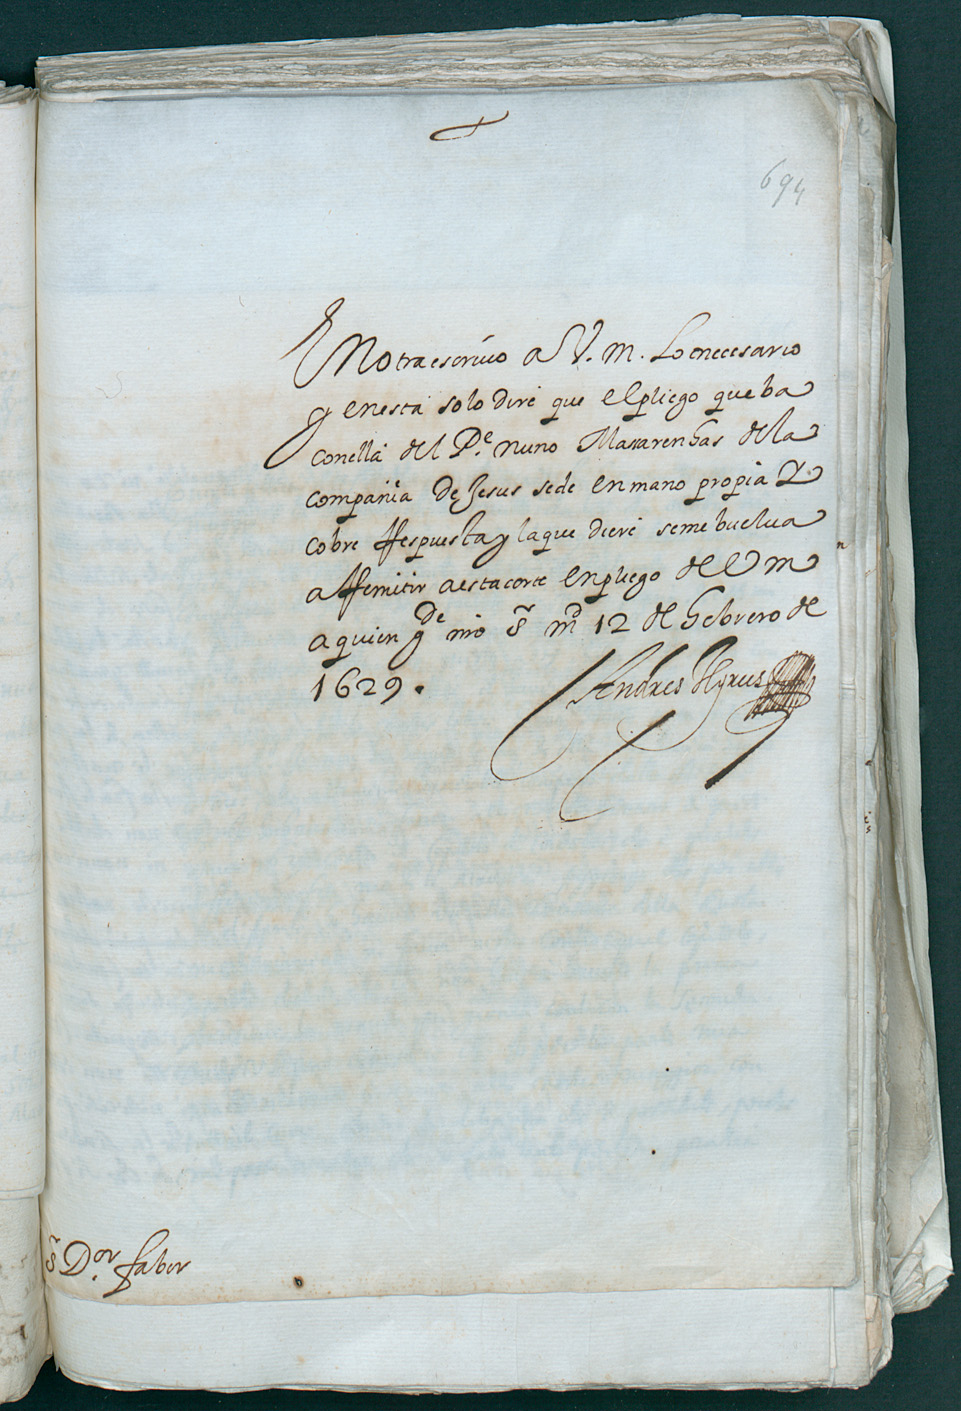 694
En otra escrivo a V. m. Lo necesario
y en esta solo dire que el pliego que ba
con ella del Pe. nuno Mascarenhas de la
compañia De Jesus se de en mano propia Y
cobre Respuesta y la que diere se me buelua
a Remitir a esta corte en pliego de V m
a quien gde nro sr md 12 de hebrero de
1629.
Andres
sr Dor. faber